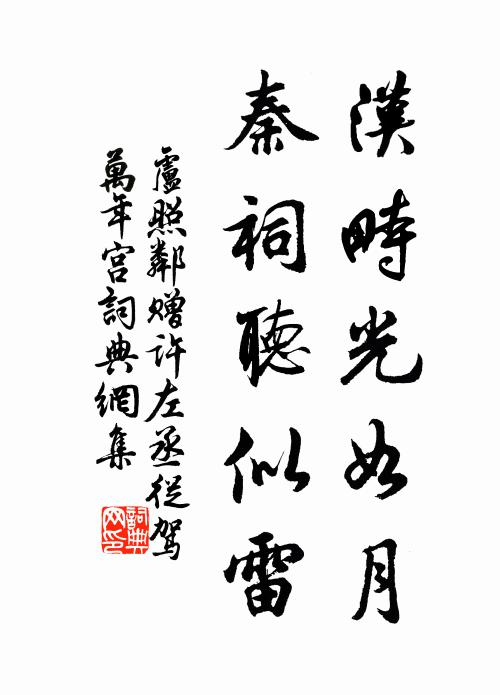 漢畤光如月
秦祠聽似雷
盧照鄰贈許左丞從駕
萬年宮詞典網集
詞典
网印